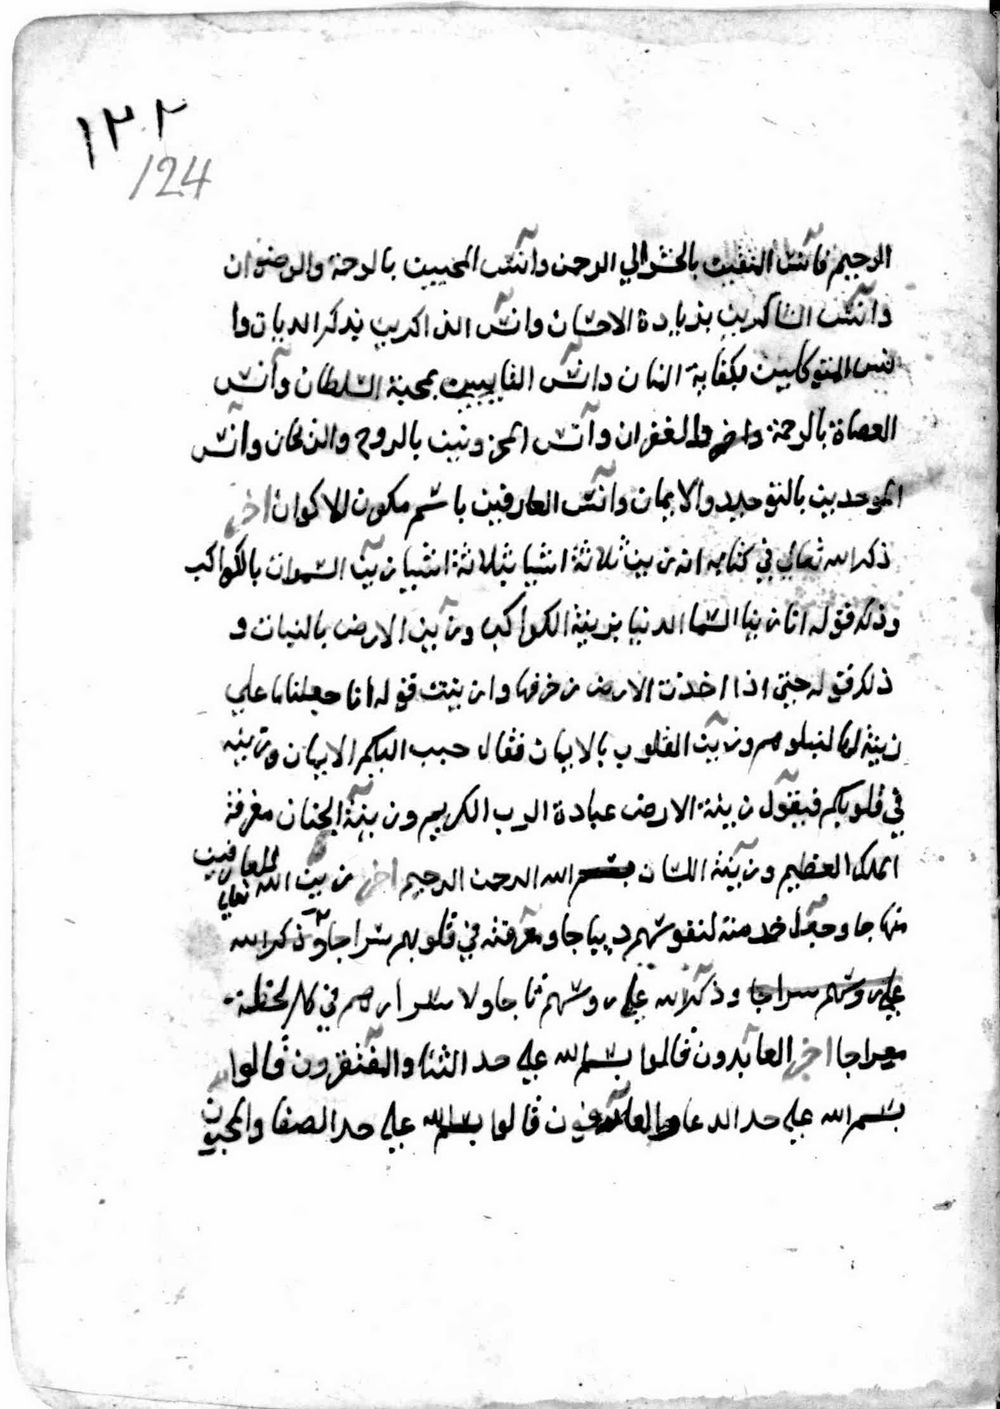 ١٣٢
124
الرحيم فآنس المتقين بالحشر الي الرحمن وآنس المحبين بالرحمة والرضوان
وآنس الشاكرين بزيادة الاحسان وآنس الذاكرين بذكر الديان وا
نس المتوكلين بكفاية المنان وآنس الغايبين بمحبة السلطان وآنس
العصاة بالرحمة والغفران وآنس المحزونين بالروح والريحان وآنس
الموحدين بالتوحيد والايمان وآنس العارفين باسم مكون الاكوان اخر
ذكر الله تعالي في كتابه انه زين ثلاثة اشيا بثلاثة اشيا زين السموات بالكواكب
وذلك قوله انا زينا السما الدنيا بزينة الكواكب وزين الارض بالنبات و
ذلك قوله حتي اذا اخذت الارض زخرفها وازينت قوله انا جعلنا ما علي
زينة لها لنبلوهم وزين القلوب بالايمان فقال حبب اليكم الايمان وزينه
في قلوبكم فيقول زينة الارض عبادة الرب الكريم وزينة الجنان معرفة
الملك العظيم وزينة اللسان بسم الله الرحمن الرحيم اخر زين الله تعالي للعارفين
منهاجا وجعل خدمته لنفوسهم ديباجا ومعرفته في قلوبهم سراجا وذكر الله
علي روسهم سراجا وذكر الله علي روسهم تاجا ولاسرارهم في كل لحظة
معراجا اخر العابدون قالوا بسم الله علي حد الثنا والمفتقرون قالوا
بسم الله علي حد الدعا والعارفون قالوا بسم الله علي حد الصفا والمحبون